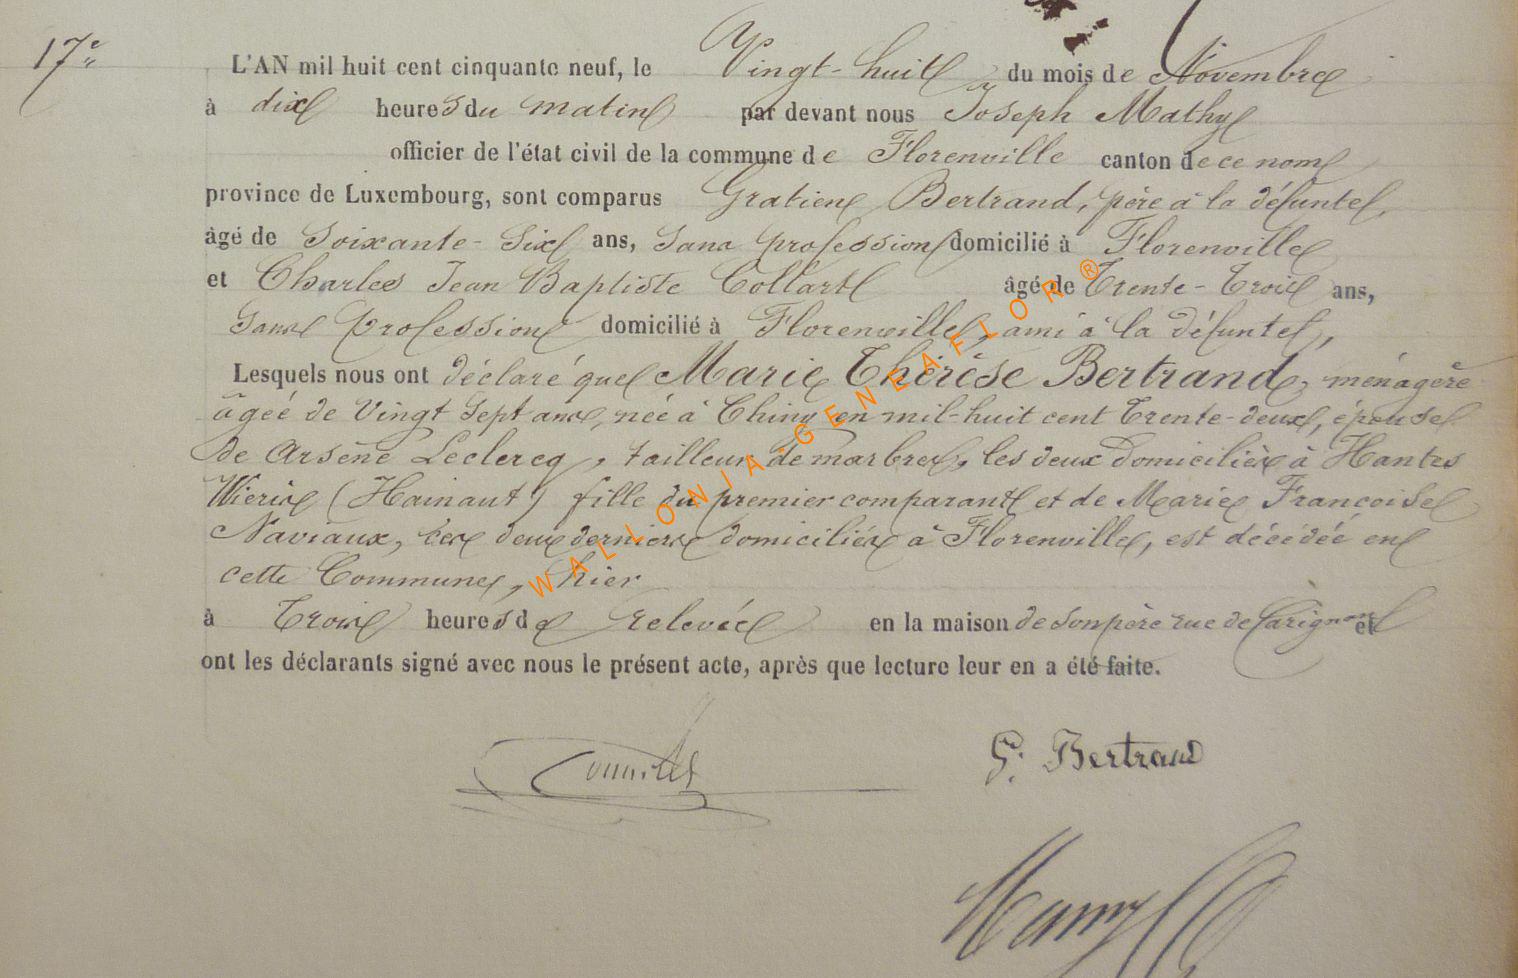 17e
L'AN mil huit cent cinquante neuf, le Vingt-huit du mois de Novembre
à dix heures du matin par devant nous Joseph Mathy
officier de l'état civil de la commune de Florenville canton de ce nom
province de Luxembourg, sont comparus Gratien Bertrand, père à la défunte,
âgé de Soixante-Six ans, Sans profession domicilié à Florenville
et Charles Jean Baptiste Collart âgé de Trente-Trois ans,
Sans profession domicilié à Florenville, ami à la défunte,
Lesquels nous ont déclaré que Marie Thérèse Bertrand, ménagère
âgée de Vingt Sept ans, née à Chiny en mil-huit cent Trente-deux, épouse
de Arsène Leclercq, tailleur de marbre, les deux domiciliés à Hantes
Wieris (Hainaut) fille du premier comparant et de Marie Françoise
Naviaux, ces deux derniers domiciliés à Florenville, est décédée en
cette Commune, hier
à Trois heures de relevée en la maison de son père rue de Carignan et
ont les déclarants signé avec nous le présent acte, après que lecture leur en a été faite.
G. Bertrand
WALLONIA-GENEAFLOR®